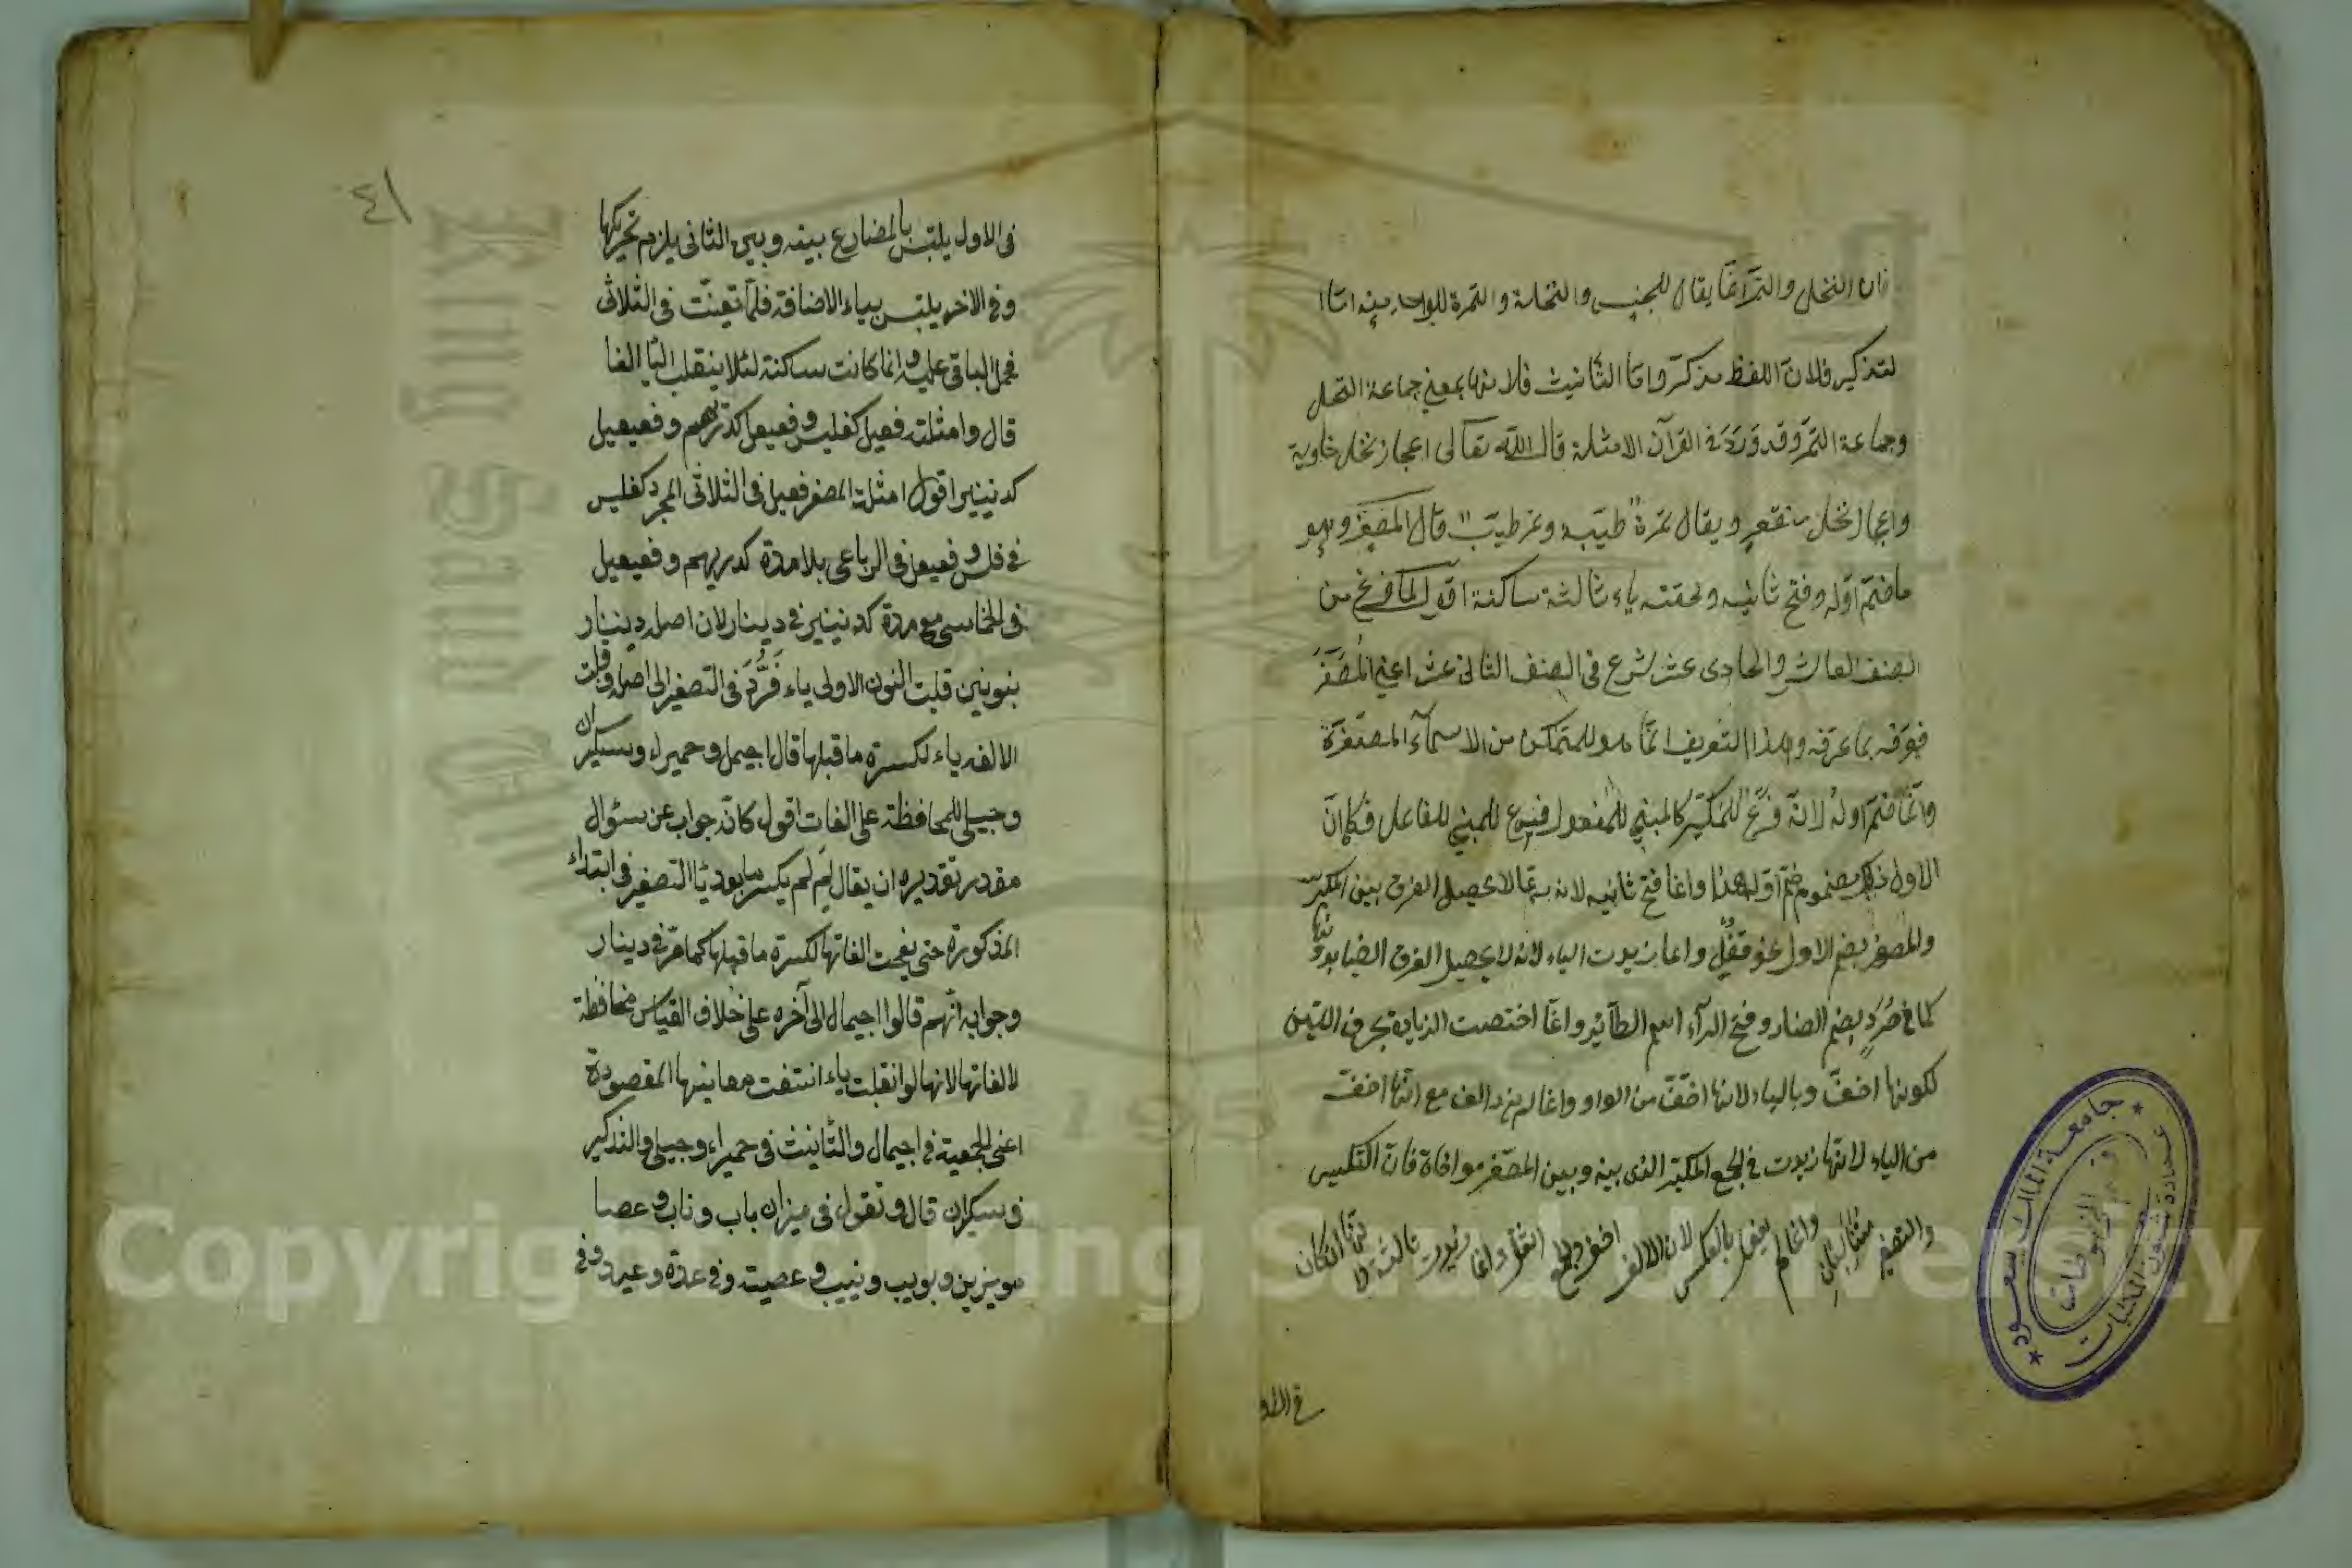 فان النخل والتمر انما يقال للجنس والنخلة والتمرة للواحد منه اما ا
لتذكير فلان اللفظ مذكر واما التأنيث فلانها بمعنى جماعة النخل
وجماعة التمر وقد ورد في القرآن الامثلة قال الله تعالى اعجاز نخل خاوية
واعجاز نخل منقعر ويقال تمرة طيبة وتمر طيب قال المصغر وهو
ما ضم اوله وفتح ثانيه ولحقته ياء ثالثة ساكنة اقول لما فرغ من
الصنف العاشر والحادى عشر شرع فى الصنف الثانى عشر اعنى المصغر
فعرفه بما عرفه وهذا التعريف انما هو للمتمكن من الاسماء المصغرة
وانما ضم اوله لانه فرع للمكبر كالمبنى للمفعول فرع للمبنى للفاعل فكما ان
الاول مضموم ضم اوله هذا وانما فتح ثانيه لانه ربما لا يحصل الفرق بين المكبر
والمصغر بضم الاول نحو قفل وانما زيدت الياء لانه لا يحصل الفرق ايضا بدونها
كما في صرد بضم الصاد وفتح الراء اسم الطائر وانما اختصت الزيادة بحرف اللين
لكونها اخف وبالياء لانها اخف من الواو وانما لم يزد الف مع انها اخف
من الياء لانها زيدت في الجمع المكبر الذى بينه وبين المصغر مواخاة فان التكسير
والتصغير وانما لم يفعل بالعكس لان الالف اخف والجمع اثقل وانما زيدت ثالثة لانها ان كان
في الاول
٤١
فى الاول يلتبس بالمضارع بينه وبين الثانى يلزم تحريكها
وفى الآخر يلتبس بياء الاضافة فلما تعينت فى الثلاثى
فحمل الباقى عليه وانما كانت ساكنة لئلا ينقلب اليا الفا
قال وامثلته فعيل كفليس وفعيعل كدريهم وفعيعيل
كدنينير اقول امثلة المصغر فعيل فى الثلاثى المجرد كفليس
فى فلس وفعيعل فى الرباعى بلا مدة كدريهم وفعيعيل
فى الخماسى مع مدة كدنينير فى دينار لان اصله دننار
بنونين قلبت النون الاولى ياء فرد فى التصغير الى اصله وقلبت
الالف ياء لكسرة ما قبلها قال اجيمال وحميراء وسكيران
وحبيلى للمحافظة على الفات اقول كانه جواب عن سئوال
مقدر تقديره ان يقال لم لم يكسر ما بعد يا التصغير فى ابتداء
المذكورة حتى يقلب الفاتها لكسرة ما قبلها كما مر فى دينار
وجوابه انهم قالوا اجيمال الى آخره على خلاف القياس محافظة
لالفاتها لانها لو انقلبت ياء انتفت معانيها المقصودة
اعنى الجمعية فى اجيمال والتأنيث فى حميراء وحبيلى والتذكير
فى سكيران قال وتقول فى ميزان باب وناب وعصا
مويزين وبويب ونييب وعصية وفى عدة وعيد وفى
جامعة الملك سعود
عمادة شؤون المكتبات
قسم المخطوطات
King Saud University
1957
Copyright © King Saud University